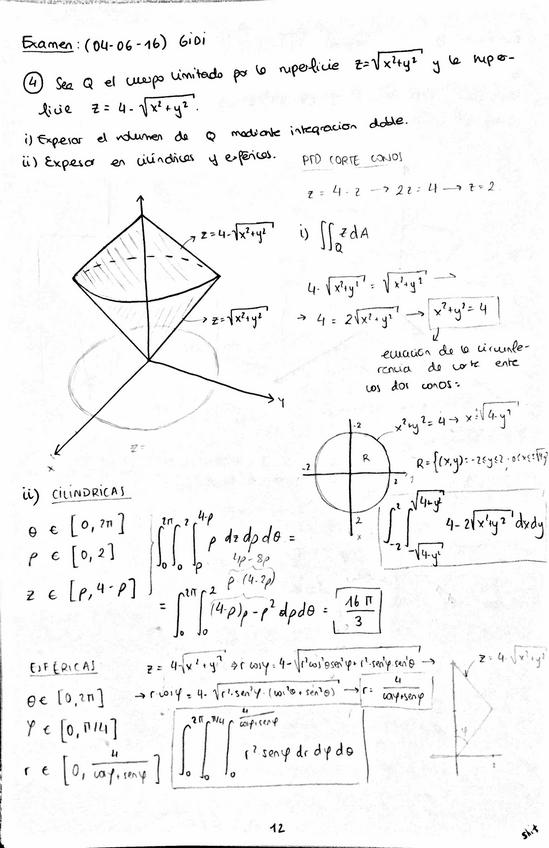 Examen: (04-06-16) GIDI
④ Sea Q el cuerpo limitado por la superficie z=√(x²+y²) y la super-
ficie z = 4 - √(x²+y²).
i) Expresar el volumen de Q mediante integracion doble.
ii) Expesar en cilíndricas y esféricas.
PTO CORTE CONOS
z = 4 - z → 2z = 4 → z = 2
z = 4-√(x²+y²)
z = √(x²+y²)
y
x
z=
i) ∬_Q z dA
4 - √(x²+y²) = √(x²+y²) →
→ 4 = 2√(x²+y²) → x²+y² = 4
ecuación de la circunfe-
rencia de corte ente
los dos conos:
x²+y² = 4 → x = √(4-y²)
-2
-2
R
2
2
x
∫_{-2}^{2} 4-2√(x²+y²) dxdy
ii) CILÍNDRICAS
θ ∈ [0, 2π]
ρ ∈ [0, 2]
z ∈ [ρ, 4-ρ]
∫_0^{2π} ∫_0^2 ∫_ρ^{4-ρ} ρ dz dρ dθ =
ρ (4-2ρ)
= ∫_0^{2π} ∫_0^2 (4-ρ)ρ - ρ² dρdθ = 16π/3
ESFÉRICAS
θ ∈ [0, 2π]
φ ∈ [0, π/4]
r ∈ [0, 4/(cosφ+senφ)]
z = 4-√(x²+y²) → r cosφ = 4-√(r²cos²θsen²φ + r²sen²φsen²θ) →
→ r cosφ = 4 - √(r²sen²φ·(cos²θ+sen²θ)) → r = 4/(cosφ+senφ)
∫_0^{2π} ∫_0^{π/4} ∫_0^{4/(cosφ+senφ)} r² senφ dr dφ dθ
z = 4-√(x²+y²)
φ
12